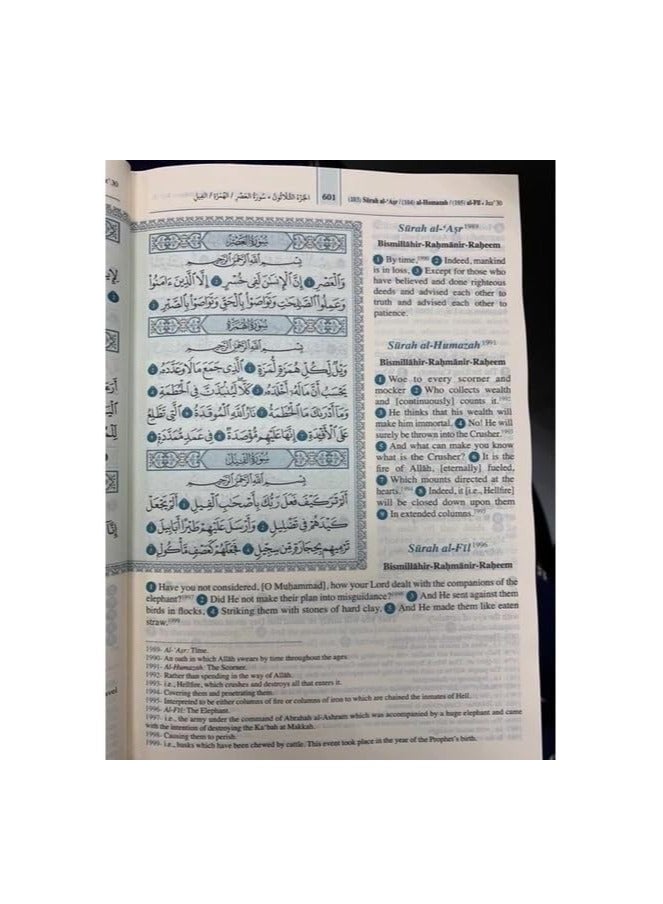 الجزء الثلاثون • سورة العصر / الهمزة / الفيل
601
(103) Sūrah al-‘Aṣr / (104) al-Humazah / (105) al-Fīl • Juz’ 30
سورة العصر
بِسْمِ اللَّهِ الرَّحْمَٰنِ الرَّحِيمِ
وَالْعَصْرِ ١ إِنَّ الْإِنسَانَ لَفِي خُسْرٍ ٢ إِلَّا الَّذِينَ آمَنُوا
وَعَمِلُوا الصَّالِحَاتِ وَتَوَاصَوْا بِالْحَقِّ وَتَوَاصَوْا بِالصَّبْرِ ٣
سورة الهمزة
بِسْمِ اللَّهِ الرَّحْمَٰنِ الرَّحِيمِ
وَيْلٌ لِّكُلِّ هُمَزَةٍ لُّمَزَةٍ ١ الَّذِي جَمَعَ مَالًا وَعَدَّدَهُ ٢
يَحْسَبُ أَنَّ مَالَهُ أَخْلَدَهُ ٣ كَلَّا لَيُنبَذَنَّ فِي الْحُطَمَةِ ٤
وَمَا أَدْرَاكَ مَا الْحُطَمَةُ ٥ نَارُ اللَّهِ الْمُوقَدَةُ ٦ الَّتِي تَطَّلِعُ
عَلَى الْأَفْئِدَةِ ٧ إِنَّهَا عَلَيْهِم مُّؤْصَدَةٌ ٨ فِي عَمَدٍ مُّمَدَّدَةٍ ٩
سورة الفيل
بِسْمِ اللَّهِ الرَّحْمَٰنِ الرَّحِيمِ
أَلَمْ تَرَ كَيْفَ فَعَلَ رَبُّكَ بِأَصْحَابِ الْفِيلِ ١ أَلَمْ يَجْعَلْ
كَيْدَهُمْ فِي تَضْلِيلٍ ٢ وَأَرْسَلَ عَلَيْهِمْ طَيْرًا أَبَابِيلَ ٣
تَرْمِيهِم بِحِجَارَةٍ مِّن سِجِّيلٍ ٤ فَجَعَلَهُمْ كَعَصْفٍ مَّأْكُولٍ ٥
Sūrah al-‘Aṣr1989
Bismillāhir-Raḥmānir-Raḥeem
1 By time,1990 2 Indeed, mankind
is in loss, 3 Except for those who
have believed and done righteous
deeds and advised each other to
truth and advised each other to
patience.
Sūrah al-Humazah1991
Bismillāhir-Raḥmānir-Raḥeem
1 Woe to every scorner and
mocker 2 Who collects wealth
and [continuously] counts it.1992
3 He thinks that his wealth will
make him immortal. 4 No! He will
surely be thrown into the Crusher.1993
5 And what can make you know
what is the Crusher? 6 It is the
fire of Allāh, [eternally] fueled,
7 Which mounts directed at the
hearts.1994 8 Indeed, it [i.e., Hellfire]
will be closed down upon them
9 In extended columns.1995
Sūrah al-Fīl1996
Bismillāhir-Raḥmānir-Raḥeem
1 Have you not considered, [O Muḥammad], how your Lord dealt with the companions of the
elephant?1997 2 Did He not make their plan into misguidance?1998 3 And He sent against them
birds in flocks, 4 Striking them with stones of hard clay, 5 And He made them like eaten
straw.1999
1989- Al-‘Aṣr: Time.
1990- An oath in which Allāh swears by time throughout the ages.
1991- Al-Humazah: The Scorner.
1992- Rather than spending in the way of Allāh.
1993- i.e., Hellfire, which crushes and destroys all that enters it.
1994- Covering them and penetrating them.
1995- Interpreted to be either columns of fire or columns of iron to which are chained the inmates of Hell.
1996- Al-Fīl: The Elephant.
1997- i.e., the army under the command of Abrahah al-Ashram which was accompanied by a huge elephant and came
with the intention of destroying the Ka‘bah at Makkah.
1998- Causing them to perish.
1999- i.e., husks which have been chewed by cattle. This event took place in the year of the Prophet's birth.